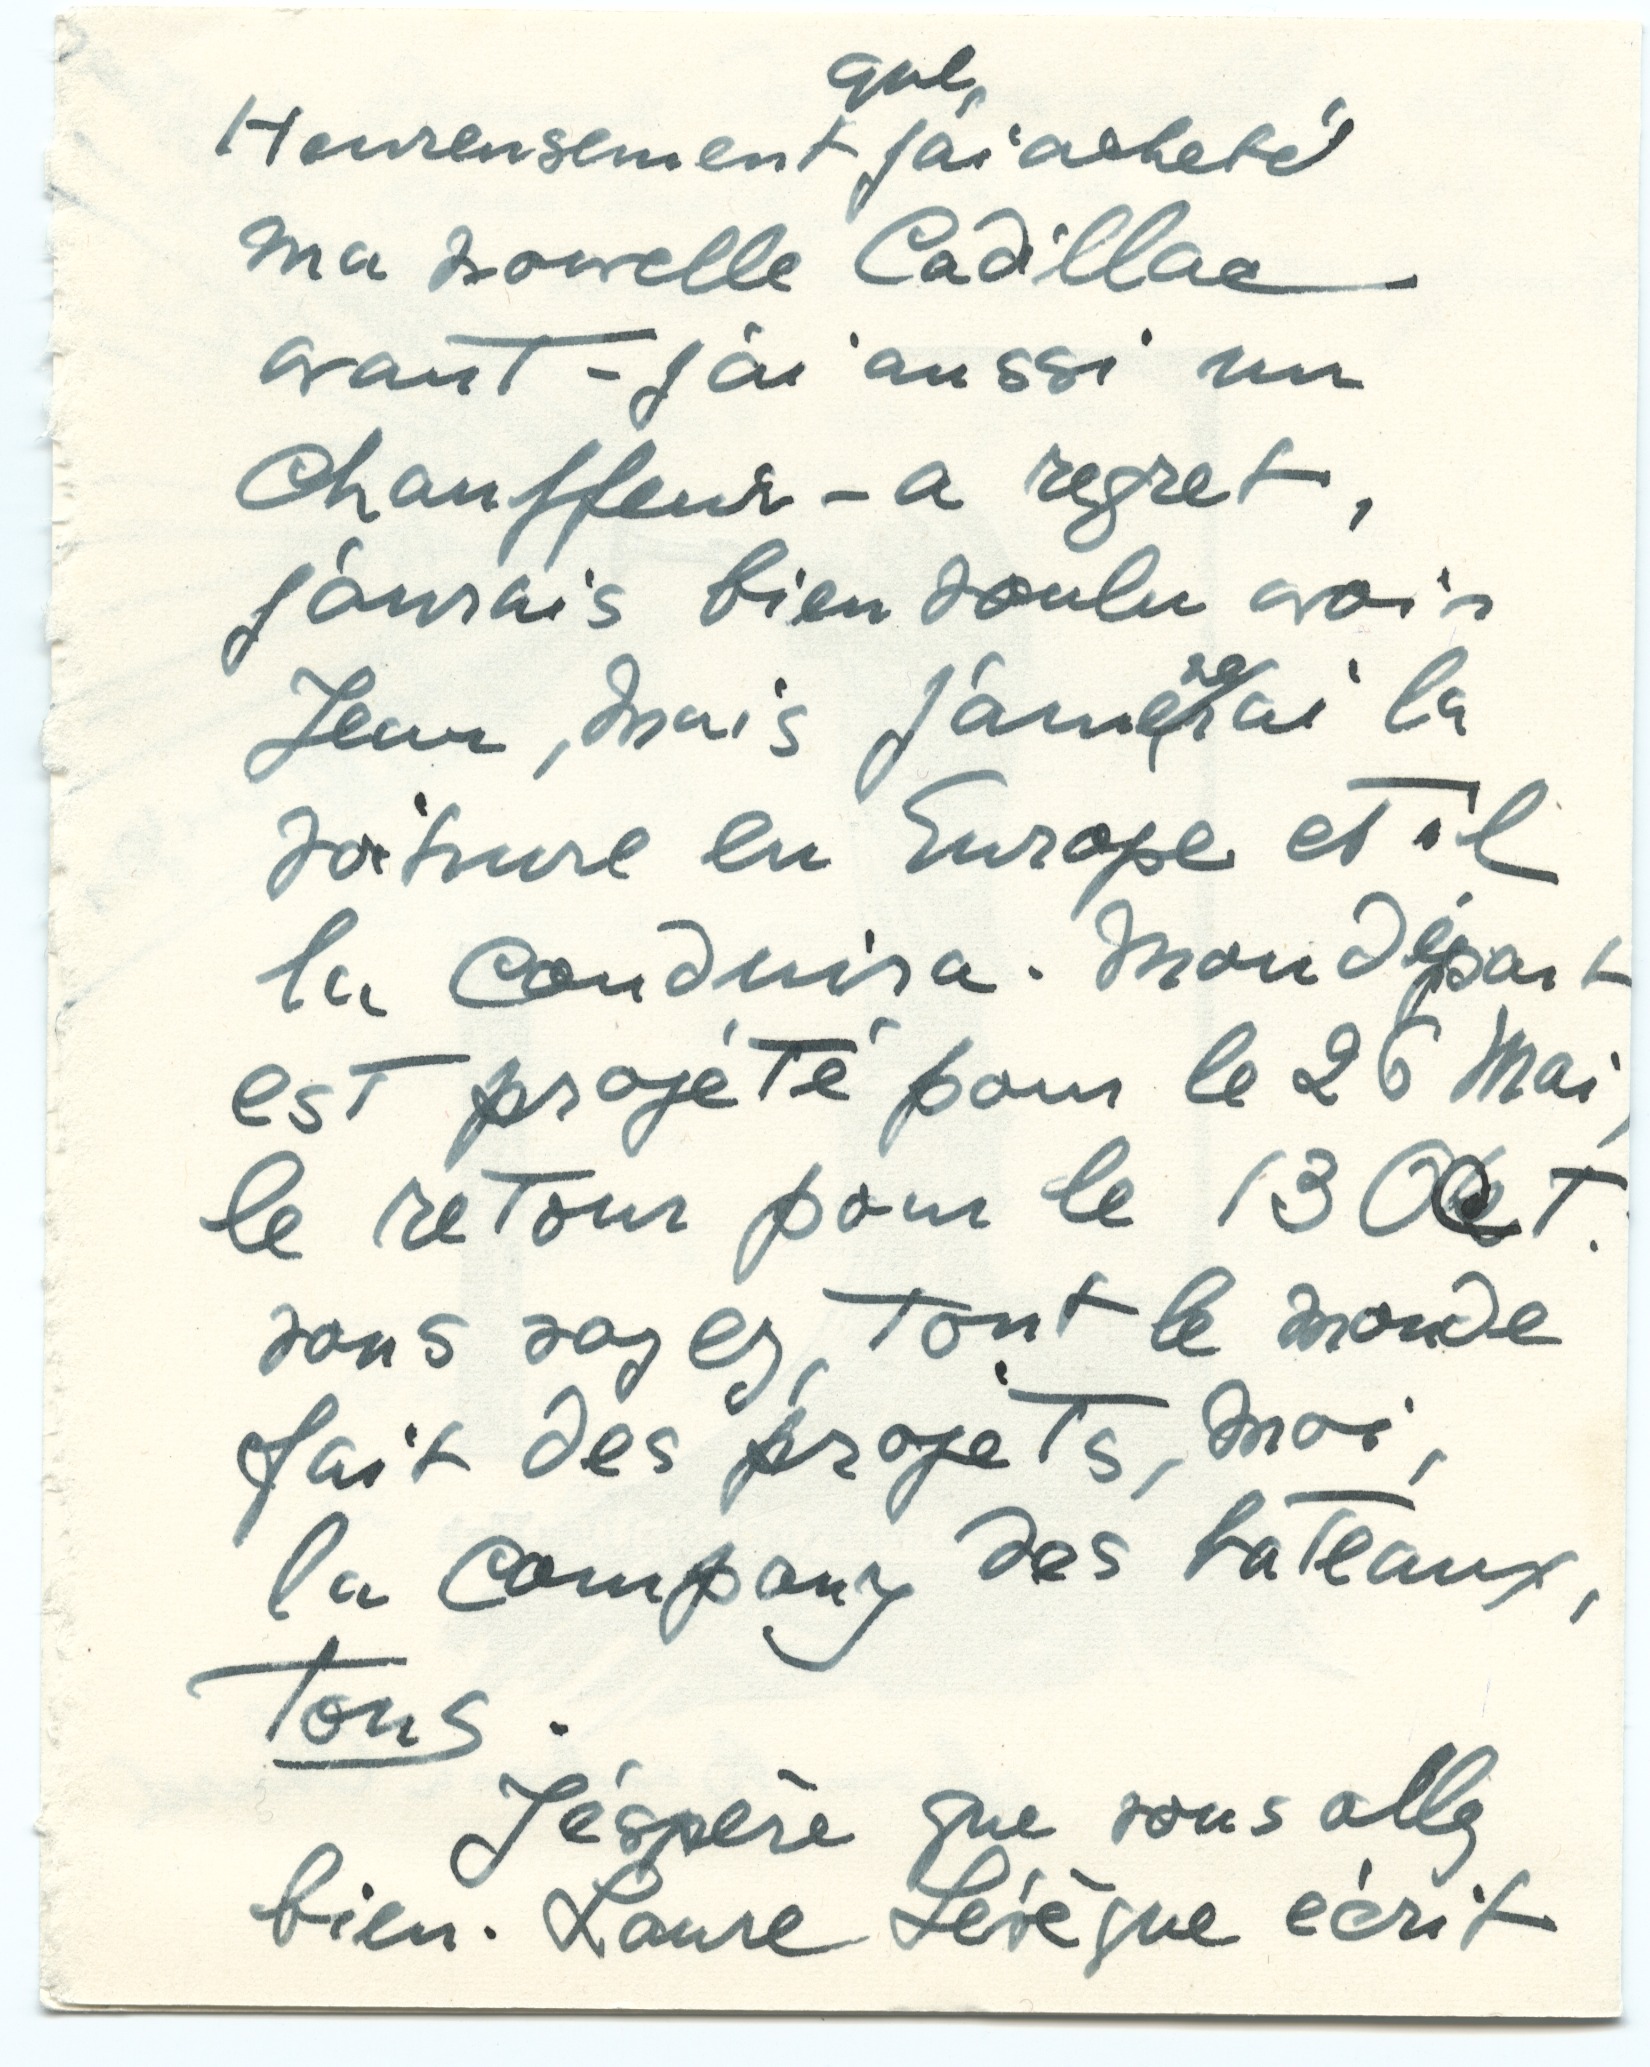 que
Heureusement j'ai acheté
ma nouvelle Cadillac
avant - j'ai aussi un
Chauffeur - a regret,
j'aurais bien voulu avoir
Jean, mais j'amènerai la
voiture en Europe et il
la conduira. Mon départ
est projété pour le 26 Mai,
le retour pour le 13 Oct.
vous voyez, tout le monde
fait des projets, moi,
la company des bateaux,
Tous.
J'éspère que vous allez
bien. Laure Lévèque écrit